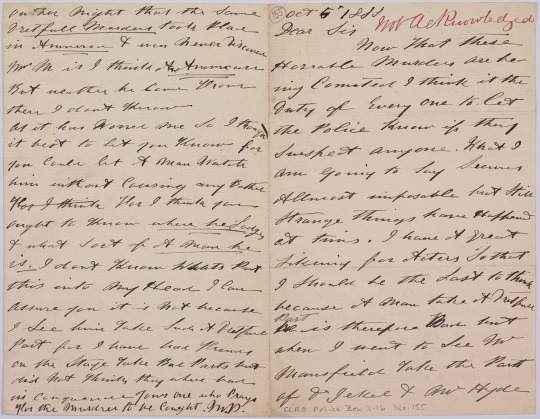 155
Oct 5 1888
Not Acknowledged
Dear Sir
Now that these
Horrable Murders are be-
ing Comited I think it the
Duty of Every one to let
the Police Know if they
Suspect anyone. What I
am Going to Say Seems
Allmost imposable but Still
Strange things have Happend
at times. I have A great
likeing for Acters So that
I should be the Last to think
because A Man take A Dretfull
Part
he is therefore Bad but
when I went to See Mr
Mansfield Take the Part
of Dr Jekel & Mr Hyde
CLRO Police Box 3.16 No. 155
other Night that the Same
Dretfull Murders took Place
in America & was never
Mr M is I think An American
But wether he Came From
there I don't Know
As it has Worred me So I thought
it best to let you Know for
you Could let A Man Watch
him without Causing any
for I think you
ought to Know where he Lodges
& what Sort of A Man he
is. I don't Know Whats Put
this into My Head I Can
assure you it is Not because
I See him Take Such A Dretfull
Part for I have had
on the Stage Take Bad Parts but
did Not Think they where bad
in Consquence Yours one who Prays
for the Murderer to be Caught. M.P.